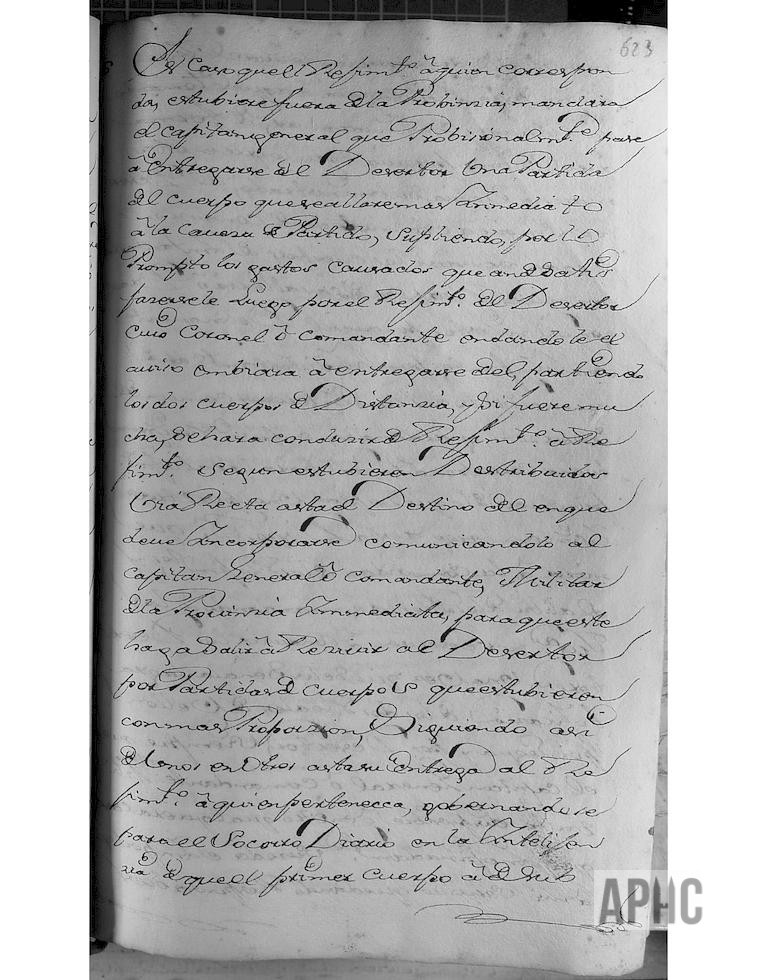 623
Es caso que el Regimto. â quien correspon
da, estubiere fuera de la Probinzia, mandara
el capitan general que Probisionalmte. pase
â Entregarse del Desertor Una Partida
del cuerpo que se allare mas Inmediato
â la Cavesa de Partido, supliendo, por lo
Prompto los gastos causados que an de satis
fazersele Luego por el Regimto. del Desertor
cuio Coronel ô comandante en dandole el
aviso embiara â entregarse del, partiendo
los dos cuerpos de Distanzia, y si fuere mu
cha, se hara conduzir de Regimto. â Re
gimto. segun estubieren Destribuidos
Via Recta asta el Destino del en que
deve Incorporarse comunicandolo al
capitan General ô comandante, Militar
de la Provinzia Immediata, para que este
haga salir â Rezivir al Desertor
por Partidas de cuerpos que estubieren
con mas Proporzion, Siguiendo asi
de Unos en Otros asta su Entrega al Re
gimto. â quien pertenecca, gobernandose
para el Socorro Diario en la Inteligen
zia de que el primer cuerpo â de sub
APHC